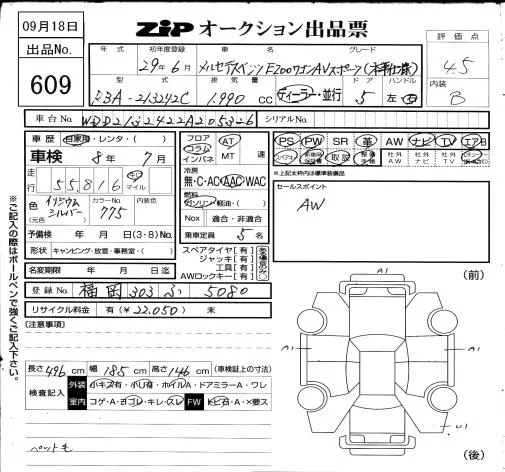 09月18日
出品No.
609
ZiP オークション出品票
評価点
4.5
内装
B
年式 初年度登録 車名 グレード
29年6月 メルセデスベンツ E200ワゴンAVスポーツ(本革仕様)
型式 排気量 ドア ハンドル
RBA-213242C 1,990 cc ディーラー・並行 5 左・右
車台No. WDD2132422A205326 シリアルNo.
車歴 自家用・レンタ・( )
車検 8年7月
走行 55,816 キロ マイル
色(元色) イリジウムシルバー カラーNo. 775 内装色
予備検 年 月 日(3・8)No.
形状 キャンピング・放室・事務室・( )
名変期限 年 月 日迄
フロア コラム インパネ AT MT 速
冷房
無・C・AC AAC・WAC
燃料
ガソリン・軽油・( )
Nox 適合・非適合
乗車定員 5名
スペアタイヤ[有]
ジャッキ[有]
工具[有]
AWロックキー[有]
PS PW SR 革 AW ナビ TV エアB
スペアキー 取説 社外AW 社外ナビ 社外TV
※上記太枠内は標準装備品
セールスポイント
AW
登録No. 福岡 303 ふ 5080
リサイクル料金 有(¥22,050) 未
(注意事項)
長さ 496 cm 幅 185 cm 高さ 146 cm (車検証上の寸法)
検査記入 外装 小キズ有・小凹有・ホイルA・ドアミラーA・ワレ
室内 コゲ・A・ヨゴレ・キレ・スレ FW トビ石・A・×要ス
ペット毛
※ご記入の際はボールペンで強くご記入下さい。
A1
(前)
A1
A1
(後)